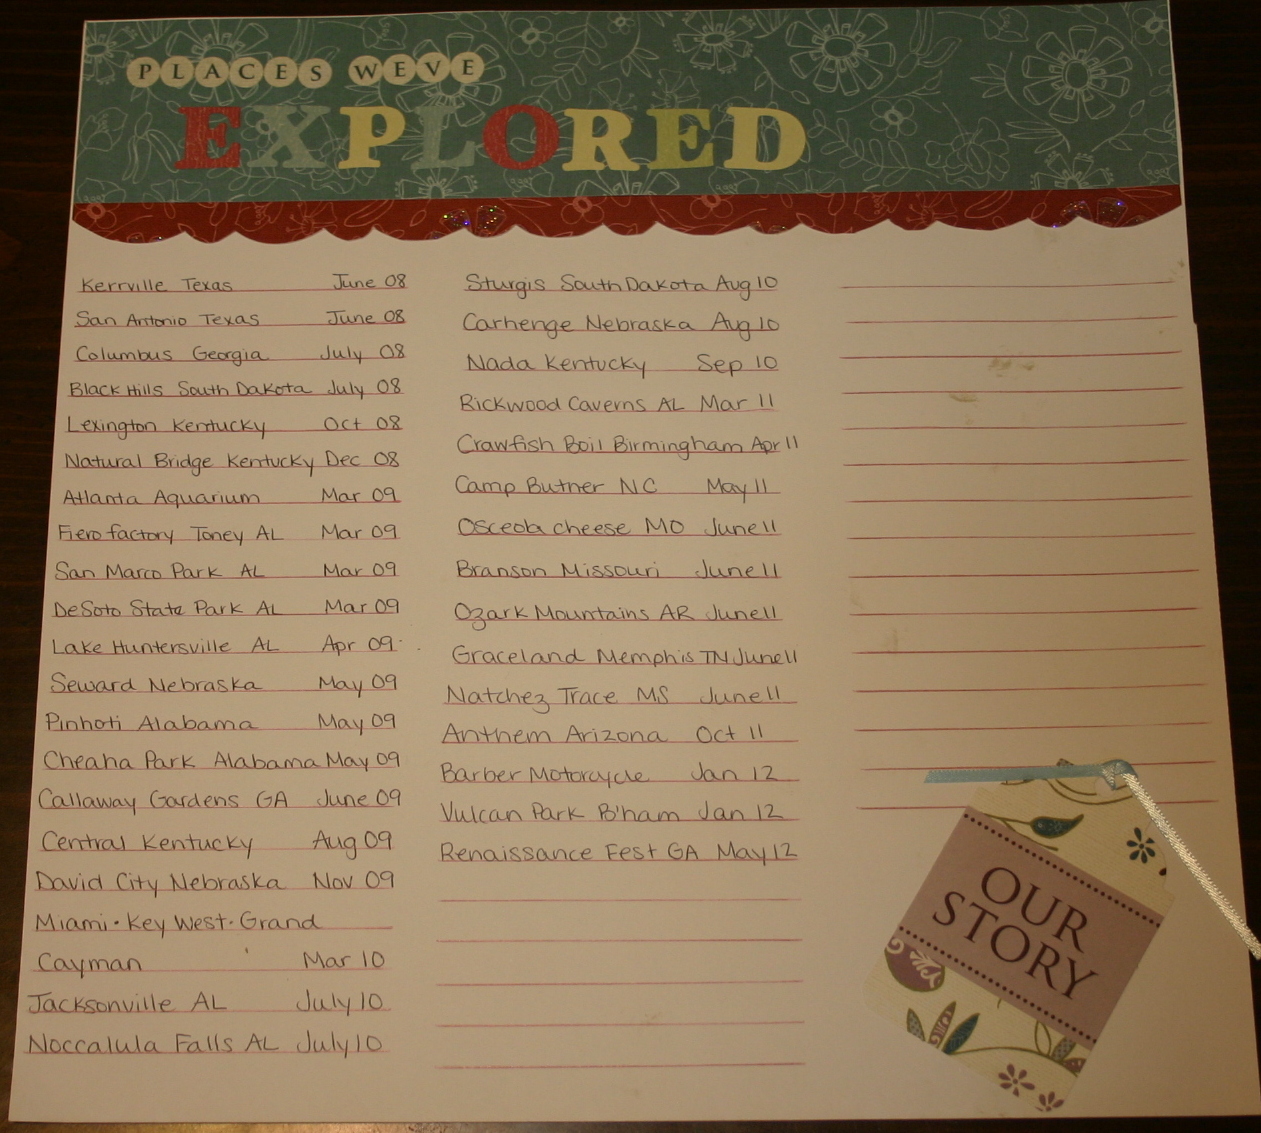 PLACES WEVE
EXPLORED
Kerrville Texas June 08
San Antonio Texas June 08
Columbus Georgia July 08
Black Hills South Dakota July 08
Lexington Kentucky Oct 08
Natural Bridge Kentucky Dec 08
Atlanta Aquarium Mar 09
Fiero factory Toney AL Mar 09
San Marco Park AL Mar 09
DeSoto State Park AL Mar 09
Lake Huntersville AL Apr 09
Seward Nebraska May 09
Pinhoti Alabama May 09
Cheaha Park Alabama May 09
Callaway Gardens GA June 09
Central Kentucky Aug 09
David City Nebraska Nov 09
Miami · Key West · Grand
Cayman Mar 10
Jacksonville AL July 10
Noccalula Falls AL July 10
Sturgis South Dakota Aug 10
Carhenge Nebraska Aug 10
Nada Kentucky Sep 10
Rickwood Caverns AL Mar 11
Crawfish Boil Birmingham Apr 11
Camp Butner NC May 11
Osceola cheese MO June 11
Branson Missouri June 11
Ozark Mountains AR June 11
Graceland Memphis TN June 11
Natchez Trace MS June 11
Anthem Arizona Oct 11
Barber Motorcycle Jan 12
Vulcan Park B'ham Jan 12
Renaissance Fest GA May 12
OUR
STORY